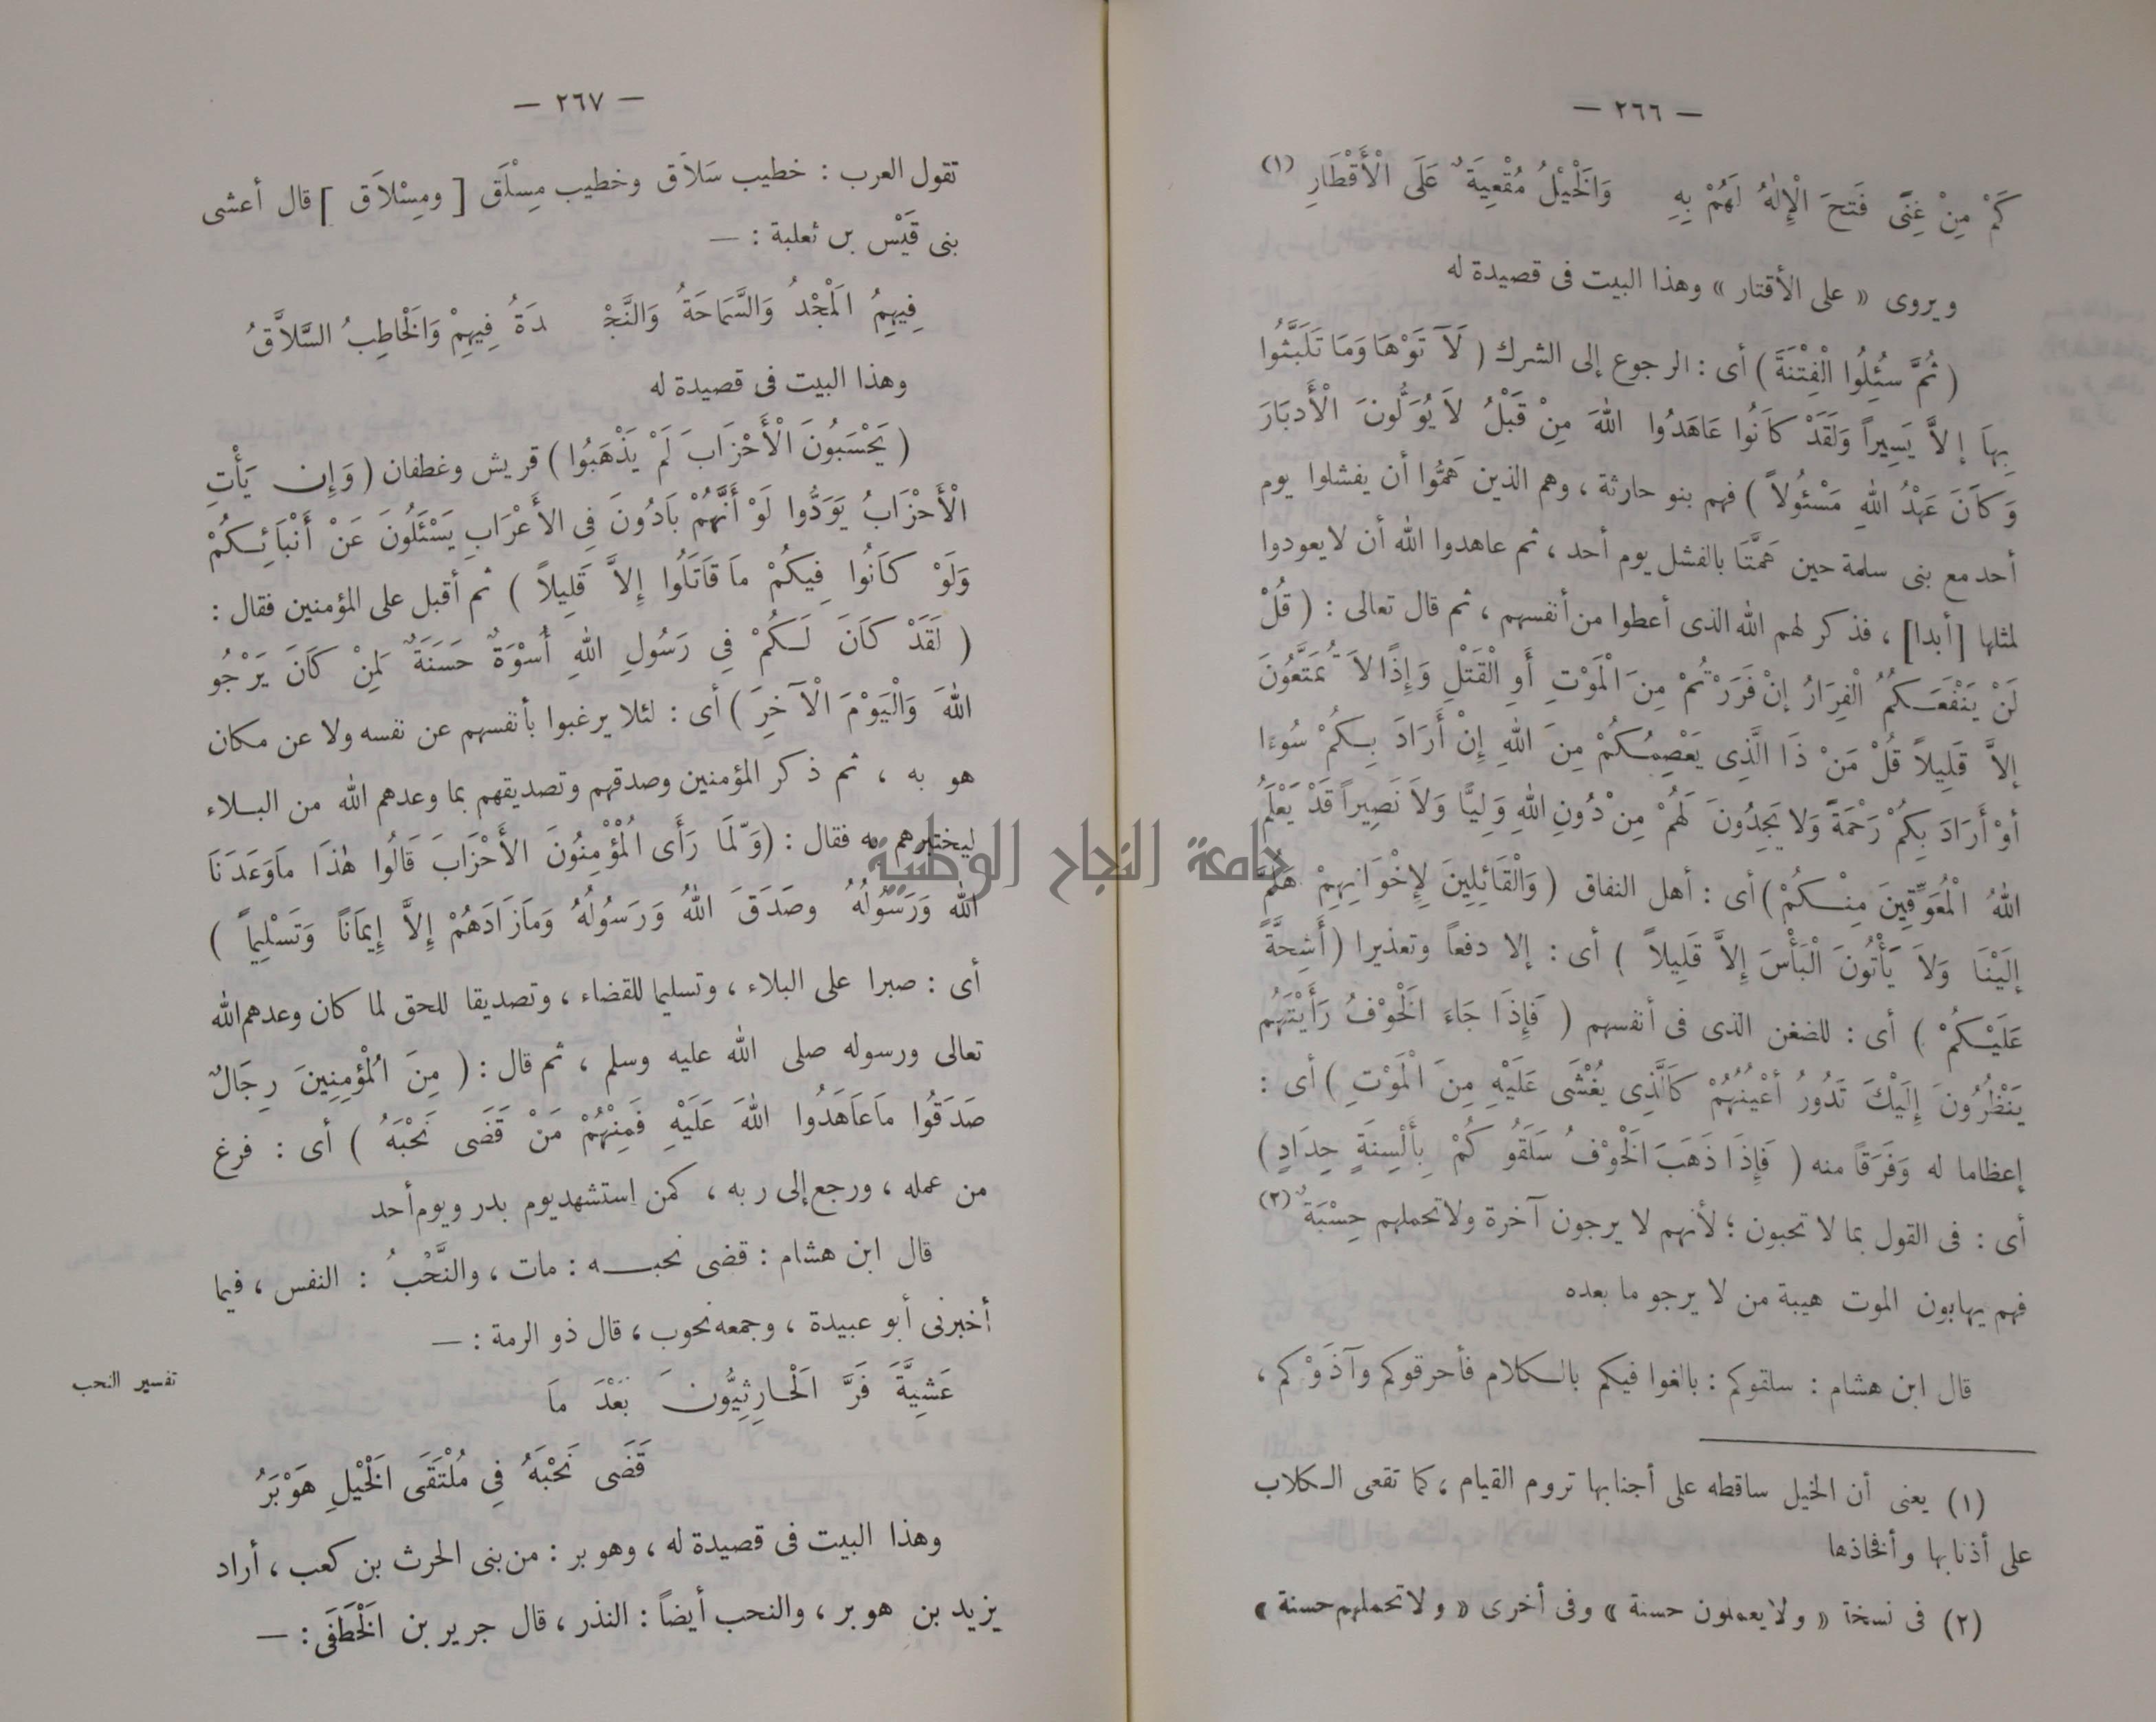 — ٢٦٦ —
كَمْ مِنْ غِنًى فَتَحَ الْإِلٰهُ لَهُمْ بِهِ وَالْخَيْلُ مُقْعِيَةٌ عَلَى الْأَقْطَارِ (١)
ويروى « على الأقتار » وهذا البيت فى قصيدة له
( ثُمَّ سُئِلُوا الْفِتْنَةَ ) أى : الرجوع إلى الشرك ( لَآتَوْهَا وَمَا تَلَبَّثُوا
بِهَا إلاَّ يَسِيراً وَلَقَدْ كَانُوا عَاهَدُوا اللهَ مِنْ قَبْلُ لاَ يُوَلُّونَ الْأَدبَارَ
وَكَانَ عَهْدُ اللهِ مَسْئُولاً ) فهم بنو حارثة ، وهم الذين هَمُّوا أن يفشلوا يوم
أحد مع بنى سلمة حين هَمَّتَا بالفشل يوم أحد ، ثم عاهدوا الله أن لا يعودوا
لمثلها [أبدا] ، فذكر لهم الله الذى أعطوا من أنفسهم ، ثم قال تعالى : ( قُلْ
لَنْ يَنْفَعَكُمُ الْفِرَارُ إنْ فَرَرْتُمْ مِنَ الْمَوْتِ أَوِ الْقَتْلِ وَإِذًا لاَ تُمَتَّعُونَ
إلاَّ قَلِيلاً قُلْ مَنْ ذَا الَّذِى يَعْصِمُكُمْ مِنَ اللهِ إِنْ أَرَادَ بِكُمْ سُوءًا
أوْ أَرَادَ بِكُمْ رَحْمَةً وَلا يَجِدُونَ لَهُمْ مِنْ دُونِ اللهِ وَلِيًّا وَلاَ نَصِيراً قَدْ يَعْلَمُ
اللهُ الْمُعَوِّقِينَ مِنْكُمْ ) أى : أهل النفاق ( وَالْقَائِلِينَ لِإِخْوَانِهِمْ هَلُمَّ
إلَيْنَا وَلاَ يَأْتُونَ الْبَأْسَ إِلاَّ قَلِيلاً ) أى : إلا دفعاً وتعذيرا ( أَشِحَّةً
عَلَيْكُمْ ) أى : للضغن الذى فى أنفسهم ( فَإِذَا جَاءَ الْخَوْفُ رَأَيْتَهُمْ
يَنْظُرُونَ إِلَيْكَ تَدُورُ أَعْيُنُهُمْ كَالَّذِى يُغْشَى عَلَيْهِ مِنَ الْمَوْتِ ) أى :
إعظاما له وَفَرَقاً منه ( فَإِذَا ذَهَبَ الْخَوْفُ سَلَقُوكُمْ بِأَلْسِنَةٍ حِدَادٍ )
أى : فى القول بما لا تحبون ؛ لأنهم لا يرجون آخرة ولا تحملهم حِسْبَةٌ (٢)
فهم يهابون الموت هيبة من لا يرجو ما بعده
قال ابن هشام : سلقوكم : بالغوا فيكم بالكلام فأحرقوكم وآذَوْكم ،
(١) يعنى أن الخيل ساقطه على أجنابها تروم القيام ، كما تقعى الكلاب
على أذنابها وأفخاذها
(٢) فى نسخة « ولا يعملون حسنة » وفى أخرى « ولا تحملهم حسنة »
— ٢٦٧ —
تقول العرب : خطيب سَلاَق وخطيب مِسْلَق [ ومِسْلاَق ] قال أعشى
بنى قَيْس بن ثعلبة : —
فِيهِمُ الْمَجْدُ وَالسَّمَاحَةُ وَالنَّجْـ ـدَةُ فِيهِمْ وَالْخَاطِبُ السَّلاَّقُ
وهذا البيت فى قصيدة له
( يَحْسَبُونَ الْأَحْزَابَ لَمْ يَذْهَبُوا ) قريش وغطفان ( وَإِن يَأْتِ
الْأَحْزَابُ يَوَدُّوا لَوْ أَنَّهُمْ بَادُونَ فِى الأَعْرَابِ يَسْئَلُونَ عَنْ أَنْبَائِكُمْ
وَلَوْ كَانُوا فِيكُمْ مَا قَاتَلُوا إِلاَّ قَلِيلاً ) ثم أقبل على المؤمنين فقال :
( لَقَدْ كَانَ لَكُمْ فِى رَسُولِ اللهِ أُسْوَةٌ حَسَنَةٌ لِمَنْ كَانَ يَرْجُو
اللهَ وَالْيَوْمَ الْآخِرَ ) أى : لئلا يرغبوا بأنفسهم عن نفسه ولا عن مكان
هو به ، ثم ذكر المؤمنين وصدقهم وتصديقهم بما وعدهم الله من البلاء
ليختبرهم به فقال : ( وَلَمَّا رَأَى الْمُؤْمِنُونَ الأَحْزَابَ قَالُوا هٰذَا مَاوَعَدَنَا
اللهُ وَرَسُولُهُ وصَدَقَ اللهُ وَرَسُولُهُ وَمَازَادَهُمْ إِلاَّ إِيمَانًا وَتَسْلِيماً )
أى : صبرا على البلاء ، وتسليما للقضاء ، وتصديقا للحق لما كان وعدهم الله
تعالى ورسوله صلى الله عليه وسلم ، ثم قال : ( مِنَ الْمُؤْمِنِينَ رِجَالٌ
صَدَقُوا مَاعَاهَدُوا اللهَ عَلَيْهِ فَمِنْهُمْ مَنْ قَضَى نَحْبَهُ ) أى : فرغ
من عمله ، ورجع إلى ربه ، كمن استشهد يوم بدر ويوم أحد
قال ابن هشام : قضى نحبه : مات ، والنَّحْبُ : النفس ، فيما
أخبرنى أبو عبيدة ، وجمعه نحوب ، قال ذو الرمة : —
تفسير النحب
عَشِيَّةَ فَرَّ الْحَارِثِيُّونَ بَعْدَ مَا
قَضَى نَحْبَهُ فِى مُلْتَقَى الْخَيْلِ هَوْبَرُ
وهذا البيت فى قصيدة له ، وهوبر : من بنى الحرث بن كعب ، أراد
يزيد بن هوبر ، والنحب أيضاً : النذر ، قال جرير بن الْخَطَفَى : —
جامعة النجاح الوطنية